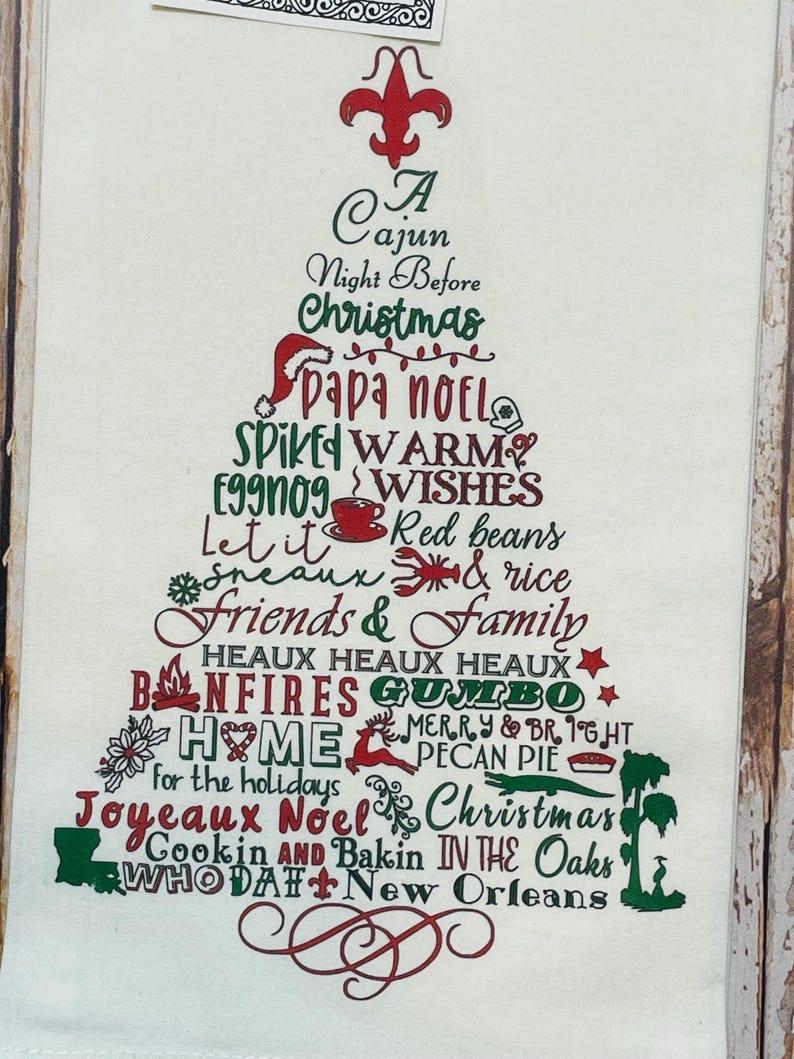 A
Cajun
Night Before
Christmas
PAPA NOEL
SPiKEd EGGNOG
WARM WISHES
Let it sneaux
Red beans & rice
Friends & Family
HEAUX HEAUX HEAUX
BONFIRES GUMBO
HOME for the holidays
MERRY & BRIGHT
PECAN PIE
Joyeaux Noel
Christmas IN THE Oaks
Cookin AND Bakin
WHO DAT New Orleans